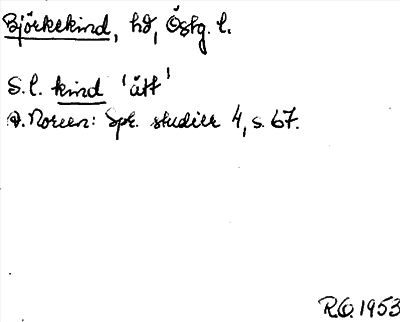 Björkekind, hd, Östg. l.
S. l. kind 'ätt'
A. Noreen: Spr. studier 4, s. 67.
R.O. 1953